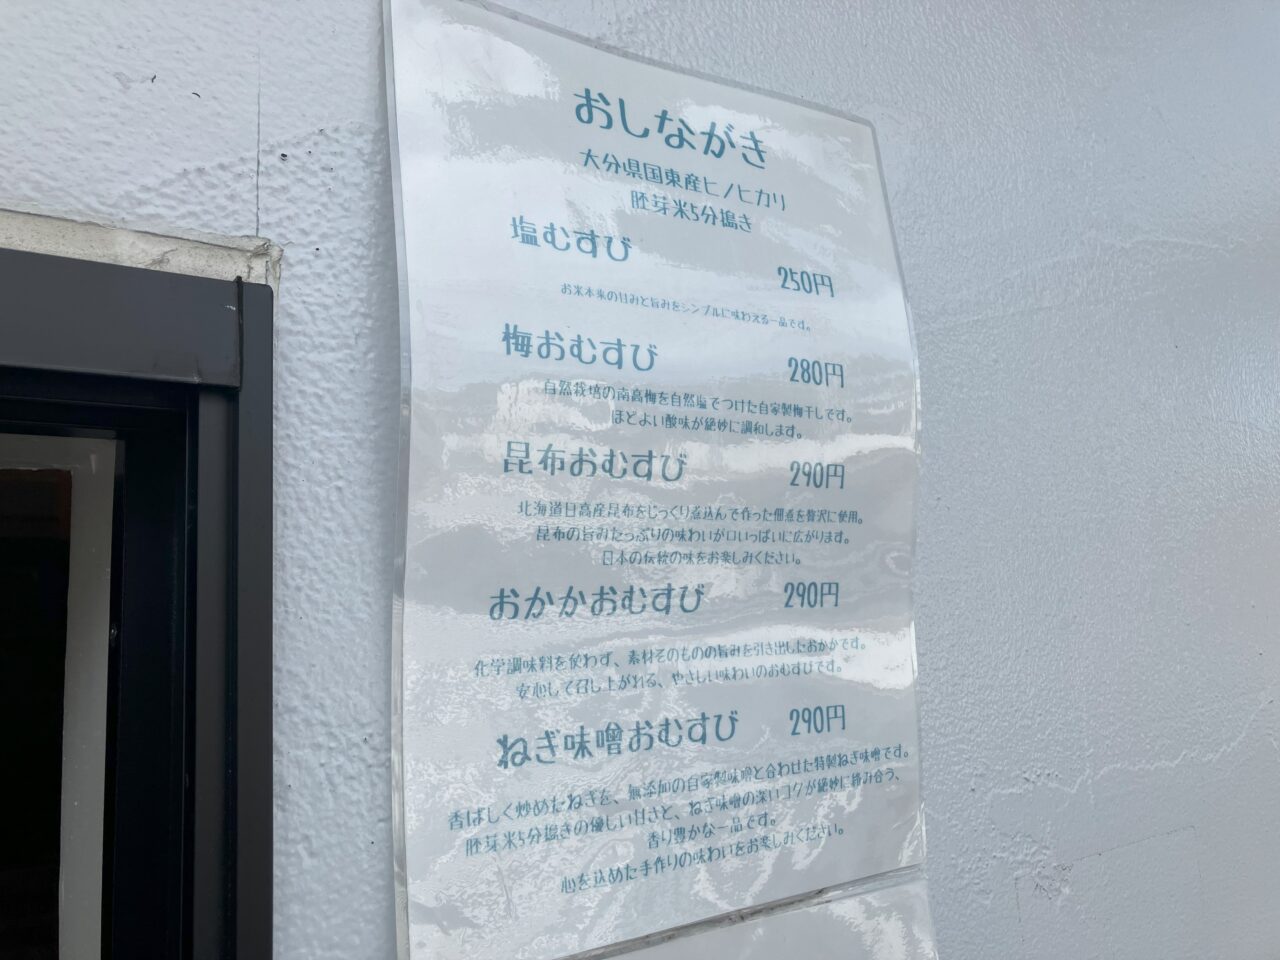 おしながき
大分県国東産ヒノヒカリ
胚芽米5分搗き
塩むすび 250円
お米本来の甘みと旨みをシンプルに味わえる一品です。
梅おむすび 280円
自然栽培の南高梅を自然塩でつけた自家製梅干しです。
ほどよい酸味が絶妙に調和します。
昆布おむすび 290円
北海道日高産昆布をじっくり煮込んで作った佃煮を贅沢に使用。
昆布の旨みたっぷりの味わいが口いっぱいに広がります。
日本の伝統の味をお楽しみください。
おかかおむすび 290円
化学調味料を使わず、素材そのものの旨みを引き出したおかかです。
安心して召し上がれる、やさしい味わいのおむすびです。
ねぎ味噌おむすび 290円
香ばしく炒めたねぎを、無添加の自家製味噌と合わせた特製ねぎ味噌です。
胚芽米5分搗きの優しい甘さと、ねぎ味噌の深いコクが絶妙に絡み合う、
香り豊かな一品です。
心を込めた手作りの味わいをお楽しみください。